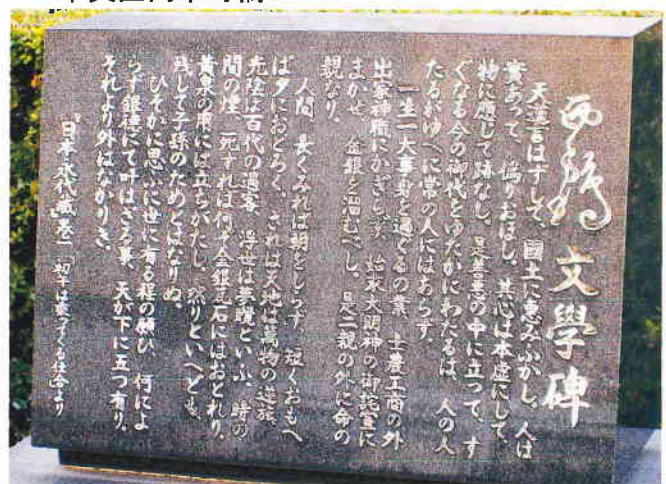 西鶴 文學碑
天道言はずして、國土に恵みふかし。人は
實あって、偽りおほし。其心は本虚にして、
物に應じて跡なし。是善悪の中に立つて、す
ぐなる今の御代をゆたかにわたるは、人の人
たるがゆへに常の人にはあらず。
一生一大事身を過ぐるの業、士農工商の外
出家神職にかぎらず、始末大明神の御託宣に
まかせ、金銀を溜むべし。是二親の外に命の
親なり。
人間、長くみれば朝をしらず、短くおもへ
ば夕におどろく。されば天地は萬物の逆旅、
光陰は百代の過客、浮世は夢幻といふ。時の
間の煙、死すれば何ぞ金銀瓦石にはおとれり。
黄泉の用には立ちがたし。然りといへども、
残して子孫のためとはなりぬ。
ひそかに思ふに世に有る程の願ひ、何によ
らず銀徳にて叶はざる事、天が下に五つ有り。
それより外はなかりき。
『日本永代蔵』巻一「初午は乗ってくる仕合」より